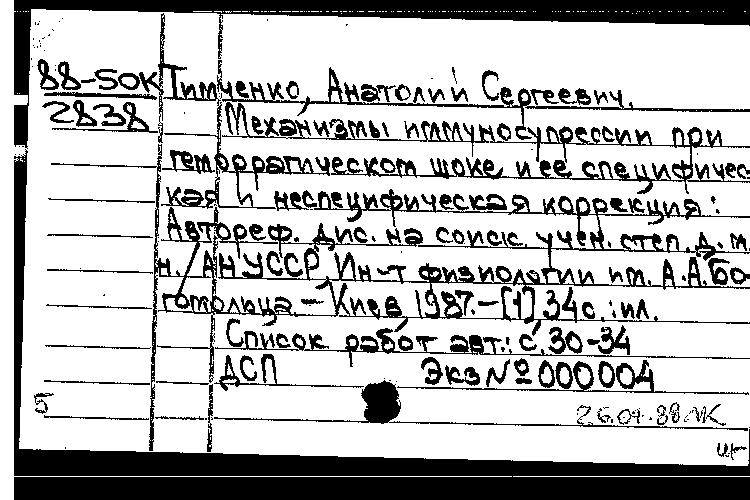 88-5ОК Тимченко, Анатолий Сергеевич.
2838 Механизмы иммуносупрессии при
геморрагическом шоке и ее специфичес-
кая и неспецифическая коррекция:
Автореф. дис. на соиск. учен. степ. д. м.
н. АН УССР, Ин-т физиологии им. А.А.Бо-
гомольца. – Киев, 1987. – [1] 34 с. : ил.
Список работ авт.: с. 30-34
ДСП Экз № 000004
5 26.04.88